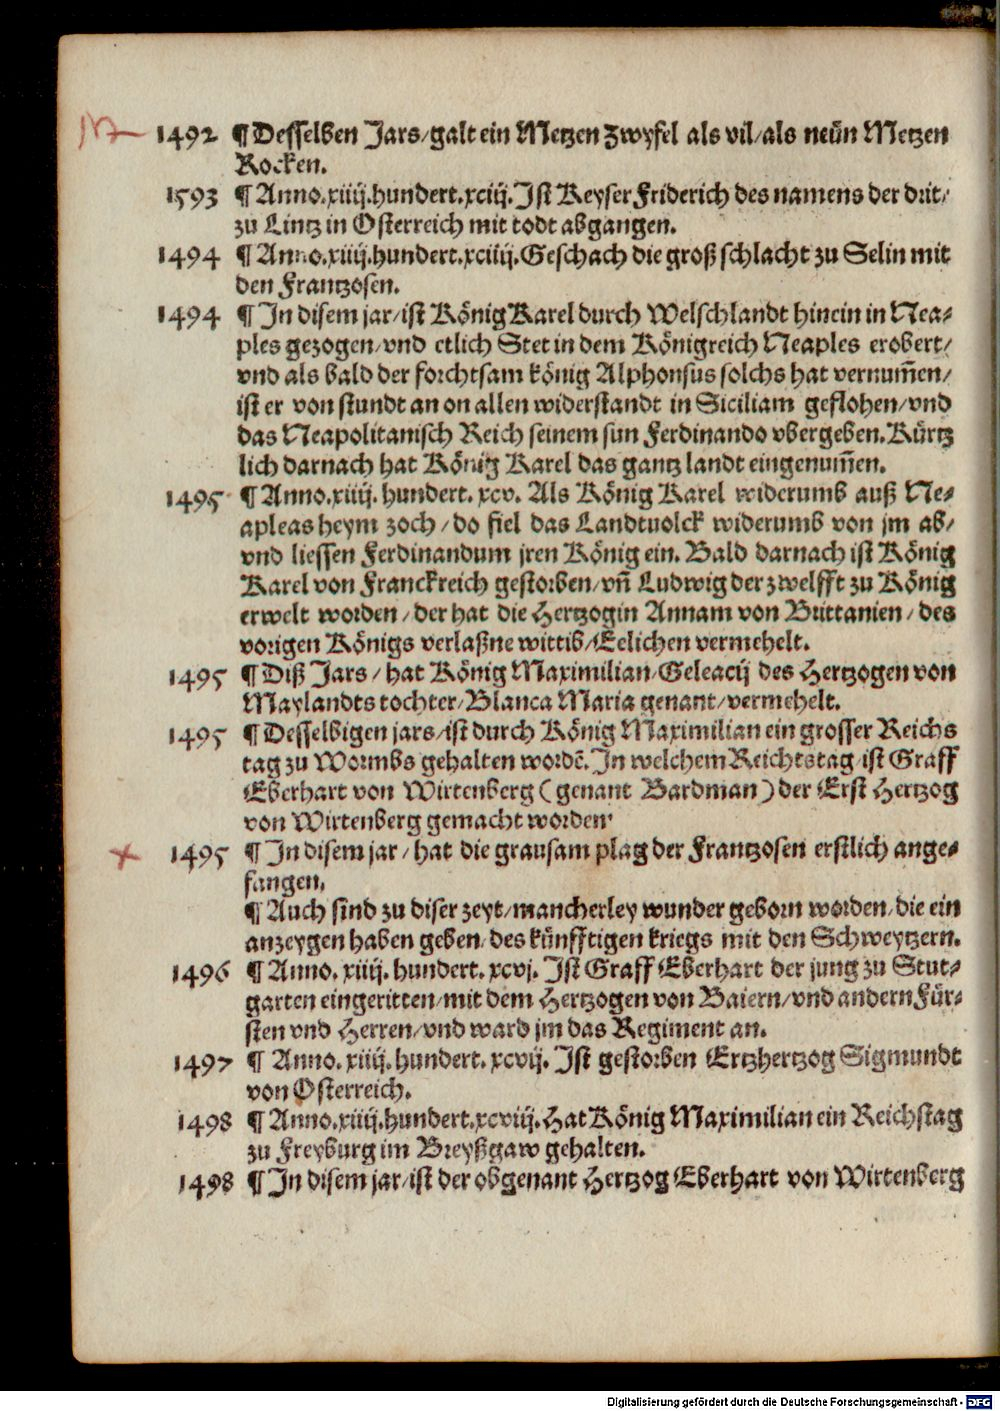 1492 ¶ Desselben Jars/galt ein Metzen Zwyfel als vil/als neün Metzen
Rocken.
1593 ¶ Anno.xiiij.hundert.xciij. Ist Keyser Friderich des namens der drit/
zu Lintz in Osterreich mit todt abgangen.
1494 ¶ Anno.xiiij.hundert.xciiij. Geschach die groß schlacht zu Selin mit
den Frantzosen.
1494 ¶ In disem jar/ist König Karel durch Welschlandt hinein in Nea⸗
ples gezogen/vnd etlich Stet in dem Königreich Neaples erobert/
vnd als bald der forchtsam könig Alphonsus solchs hat vernum̃en/
ist er von stundt an on allen widerstandt in Siciliam geflohen/vnd
das Neapolitanisch Reich seinem sun Ferdinando vbergeben. Kürtz
lich darnach hat König Karel das gantz landt eingenum̃en.
1495 ¶ Anno.xiiij. hundert. xcv. Als König Karel widerumb auß Ne⸗
apleas heym zoch/do fiel das Landtuolck widerumb von jm ab/
vnd liessen Ferdinandum jren König ein. Bald darnach ist König
Karel von Franckreich gestorben/vñ Ludwig der zwelfft zu König
erwelt worden/der hat die Hertzogin Annam von Brittanien/des
vorigen Königs verlaßne wittib/Eelichen vermehelt.
1495 ¶ Diß Jars/hat König Maximilian/Geleacij des Hertzogen von
Maylandts tochter/Blanca Maria genant/vermehelt.
1495 ¶ Desselbigen jars/ist durch König Maximilian ein grosser Reichs
tag zu Wormbs gehalten wordẽ. In welchem Reichtstag/ist Graff
Eberhart von Wirtenberg (genant Bardman) der Erst Hertzog
von Wirtenberg gemacht worden.
1495 ¶ In disem jar/hat die grausam plag der Frantzosen erstlich ange⸗
fangen.
¶ Auch sind zu diser zeyt/mancherley wunder geborn worden/die ein
anzeygen haben geben/des künfftigen kriegs mit den Schweytzern.
1496 ¶ Anno. xiiij. hundert. xcvj. Ist Graff Eberhart der jung zu Stut⸗
garten eingeritten/mit dem Hertzogen von Baiern/vnd andern Für⸗
sten vnd Herren/vnd ward jm das Regiment an.
1497 ¶ Anno. xiiij. hundert. xcvij. Ist gestorben Ertzhertzog Sigmundt
von Osterreich.
1498 ¶ Anno.xiiij.hundert.xcviij. Hat König Maximilian ein Reichstag
zu Freyburg im Breyßgaw gehalten.
1498 ¶ In disem jar/ist der obgenant Hertzog Eberhart von Wirtenberg
Digitalisierung gefördert durch die Deutsche Forschungsgemeinschaft - DFG